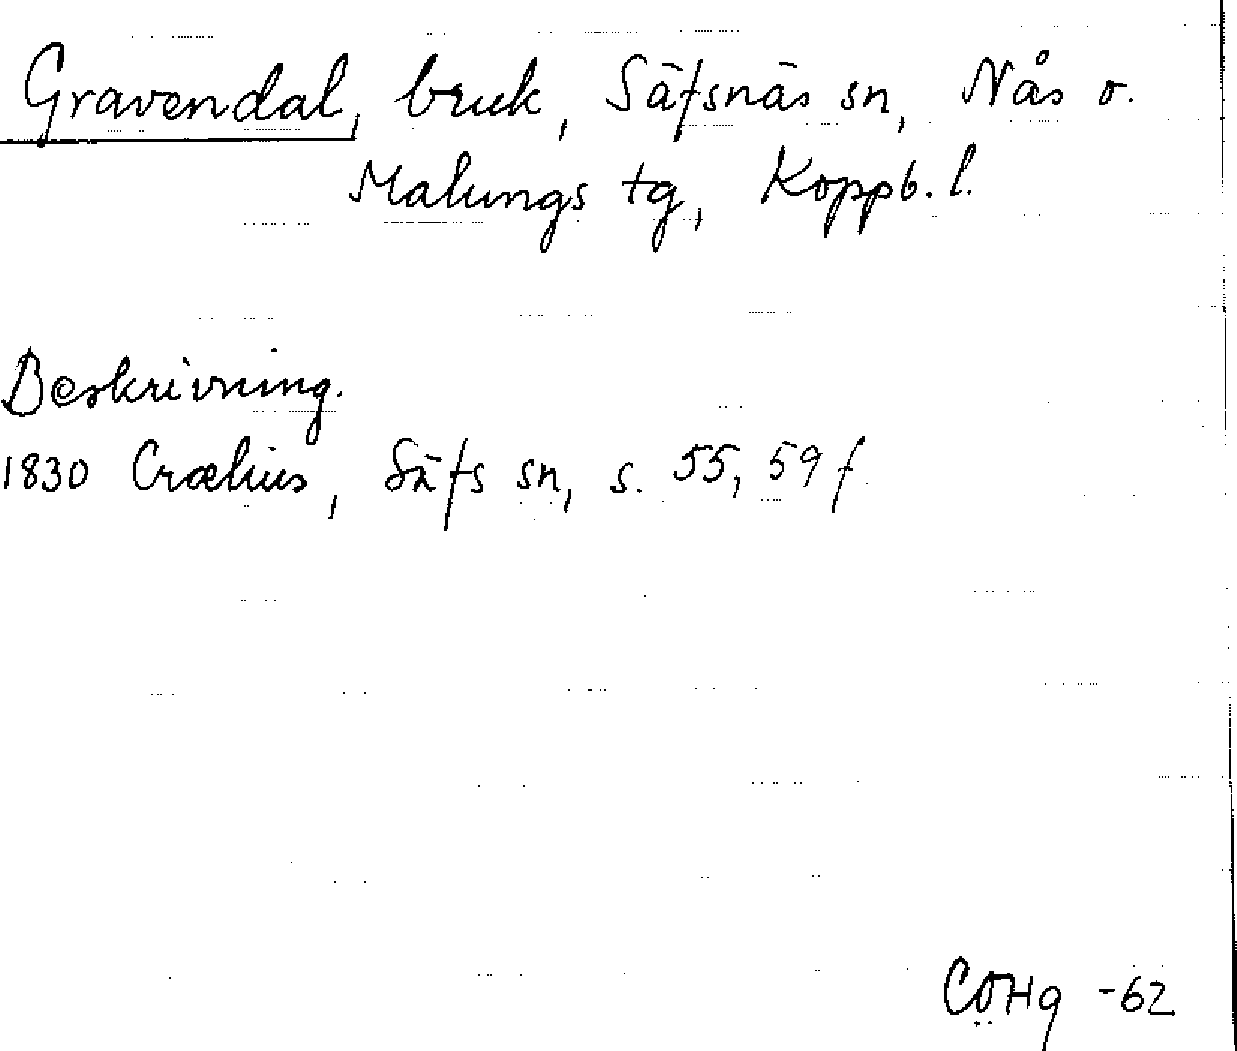 Gravendal, bruk, Säfsnäs sn, Nås o.
Malungs tg, Koppb. l.
Beskrivning.
1830 Crælius, Säfs sn, s. 55, 59 f.
COHg -62